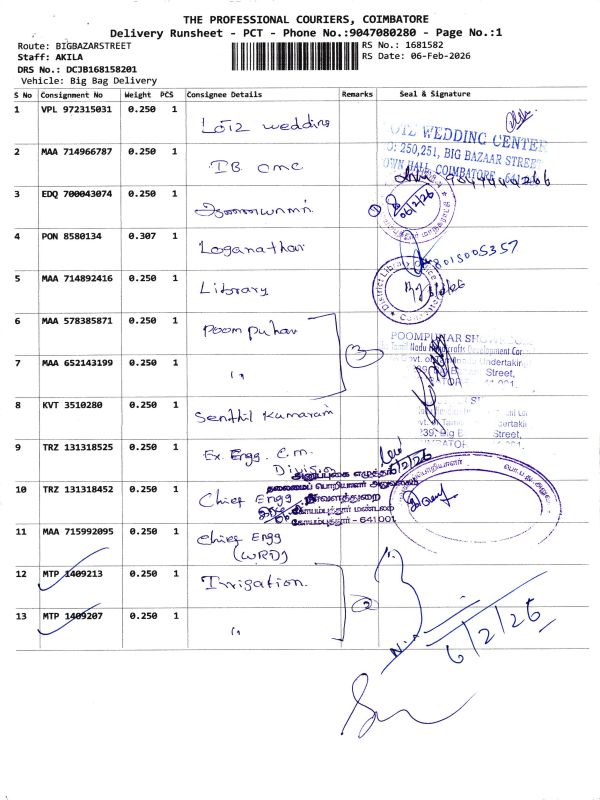 THE PROFESSIONAL COURIERS, COIMBATORE
Delivery Runsheet - PCT - Phone No.:9047080280 - Page No.:1
Route: BIGBAZARSTREET
RS No.: 1681582
Staff: AKILA
RS Date: 06-Feb-2026
DRS No.: DCJB168158201
Vehicle: Big Bag Delivery
S No Consignment No Weight PCS Consignee Details Remarks Seal & Signature
1 VPL 972315031 0.250 1 Lotz wedding
LOTZ WEDDING CENTER
NO: 250,251, BIG BAZAAR STREET
TOWN HALL, COIMBATORE - 641
2 MAA 714966787 0.250 1 IB one
3 EDQ 700043074 0.250 1
① 06/2/26
4 PON 8580134 0.307 1 Loganathan
8015005357
5 MAA 714892416 0.250 1 Library
District Library Office
6 MAA 578385871 0.250 1 Poompuhar
③
POOMPUHAR SHOWROOM
Tamil Nadu Handicrafts Development Cor
Street,
641 001.
7 MAA 652143199 0.250 1 "
8 KVT 3510280 0.250 1 Senthil Kumaram
9 TRZ 131318525 0.250 1 Ex. Engg. C.m.
Division
6/2/26
தலைமைப் பொறியாளர் அலுவலகம்
நீர்வளத்துறை
கோயம்புத்தூர் மண்டலம்
கோயம்புத்தூர் - 641 001
10 TRZ 131318452 0.250 1 Chief Engg
11 MAA 715992095 0.250 1 Chief Engg
(WRD)
12 MTP 1409213 0.250 1 Irrigation
②
13 MTP 1409207 0.250 1 "
6/2/26